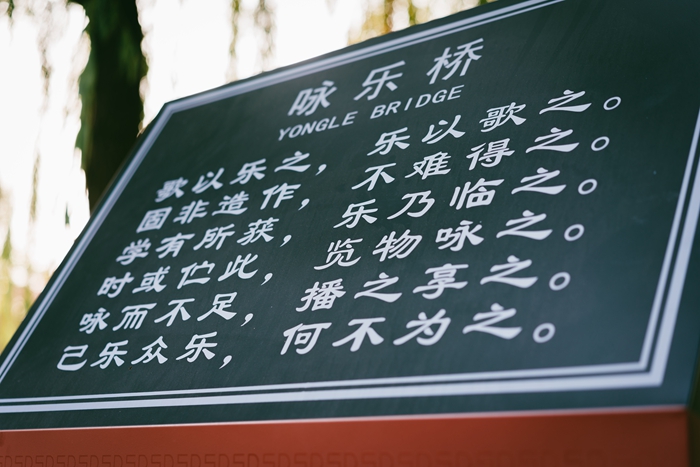 咏乐桥
YONGLE BRIDGE
歌以乐之，乐以歌之。
固非造作，不难得之。
学有所获，乐乃临之。
时或伫此，览物咏之。
咏而不足，播之享之。
己乐众乐，何不为之。